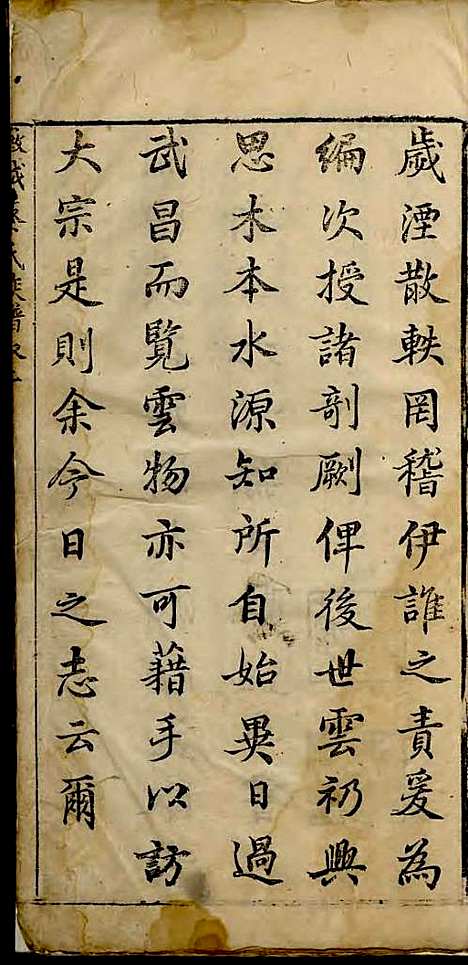 歲湮散軼罔稽伊誰之責爰為
編次授諸剞劂俾後世雲礽興
思木本水源知所自始異日過
武昌而覽雲物亦可藉手以訪
大宗是則余今日之志云爾
氏族譜